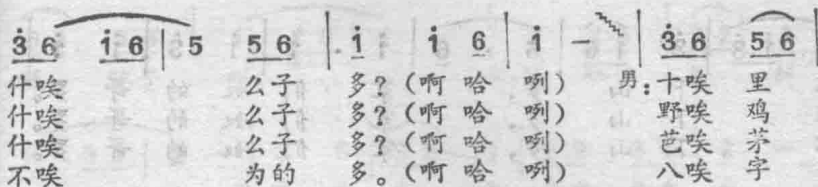 3̇ 6 1̇ 6 | 5 5 6 | 1̇ 1̇ 6 | 1̇ – | 3̇ 6 5 6 |
什唉 么子 多？（啊 哈 咧） 男：十唉 里
什唉 么子 多？（啊 哈 咧） 野唉 鸡
什唉 么子 多？（啊 哈 咧） 芭唉 茅
不唉 为的 多。（啊 哈 咧） 八唉 字